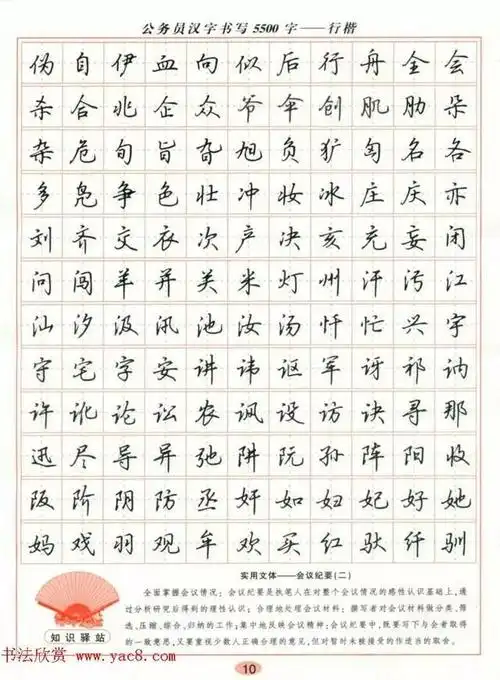 公务员汉字书写5500字——行楷
伪自伊血向似后行舟全会
杀合兆企众爷伞创肌肋朵
杂危旬旨旮旭负犷匈名各
多凫争色壮冲妆冰庄庆亦
刘齐交衣次产决亥充妄闭
问闯羊并关米灯州汗污江
汕汐汲汛池汝汤忏忙兴宇
守宅字安讲讳讴军讶祁讷
许讹论讼农讽设访诀寻那
迅尽导异弛阱阮孙阵阳收
阪阶阴防丞奸如妇妃好她
妈戏羽观牟欢买红驮纤驯
实用文体——会议纪要(二)
全面掌握会议情况;会议纪要是执笔人在对整个会议情况的感性认识基础上,通
过分析研究后得到的理性认识;合理地处理会议材料;撰写者对会议材料做分类、筛
选、压缩、综合、归纳的工作;集中地反映会议精神;会议纪要中,既要写下与会者取得
的一致意见,又要重视少数人正确合理的意见,但对暂时未被接受的作适当的取舍。
知识驿站
书法欣赏 www.yac8.com
10